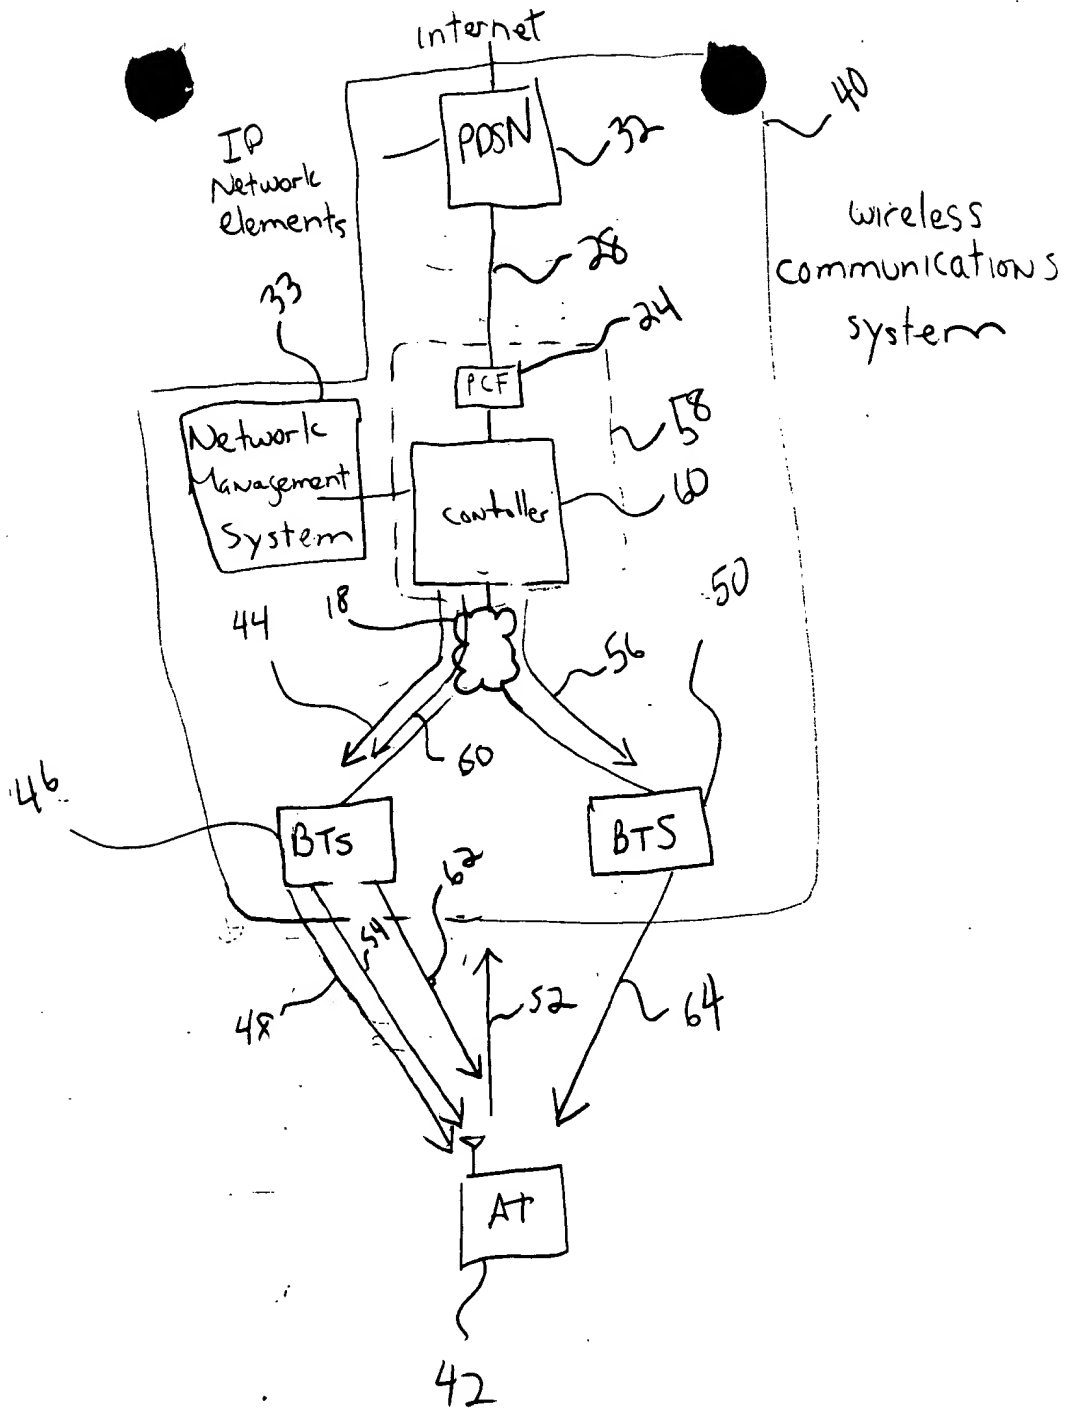 internet
40
PDSN
32
IP
Network
elements
wireless
communications
system
28
33
24
PCF
58
Network
Management
System
60
Contoller
50
18
44
56
60
46
BTS
BTS
62
54
48
52
64
AT
42